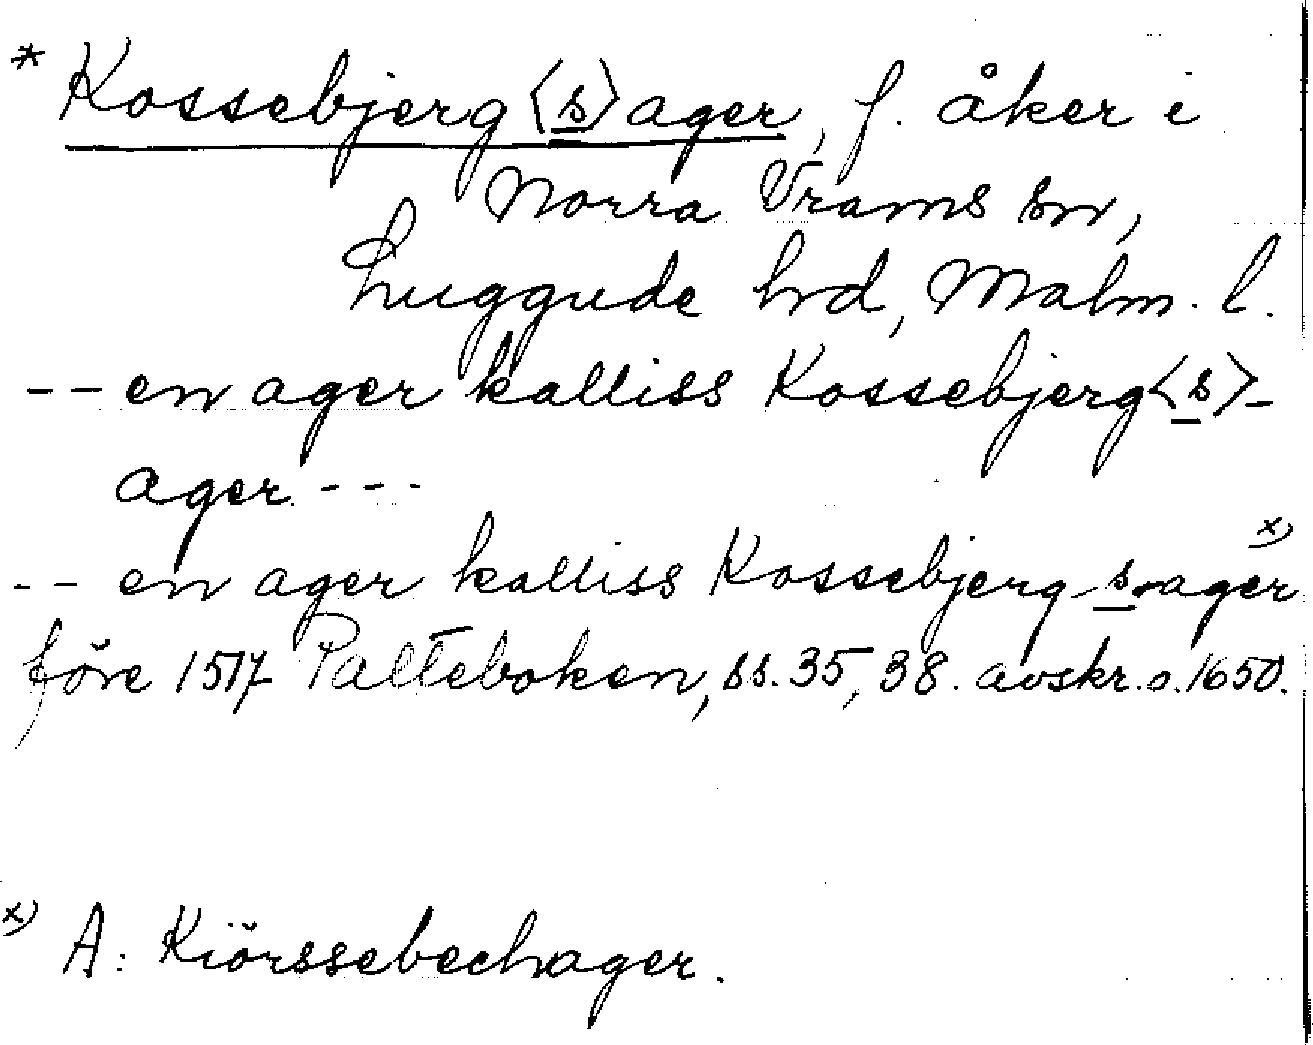 * Kossebjerg⟨s⟩ager, f. åker i
Norra Vrams sn,
Luggude hrd, Malm. l.
-- en ager kalliss Kossebjerg⟨s⟩-
ager. ---
-- en ager kalliss Kossebjerg-s-ager x)
före 1517 Palteboken, ss. 35, 38. avskr. o. 1650.
x) A: Kiörssebechager.